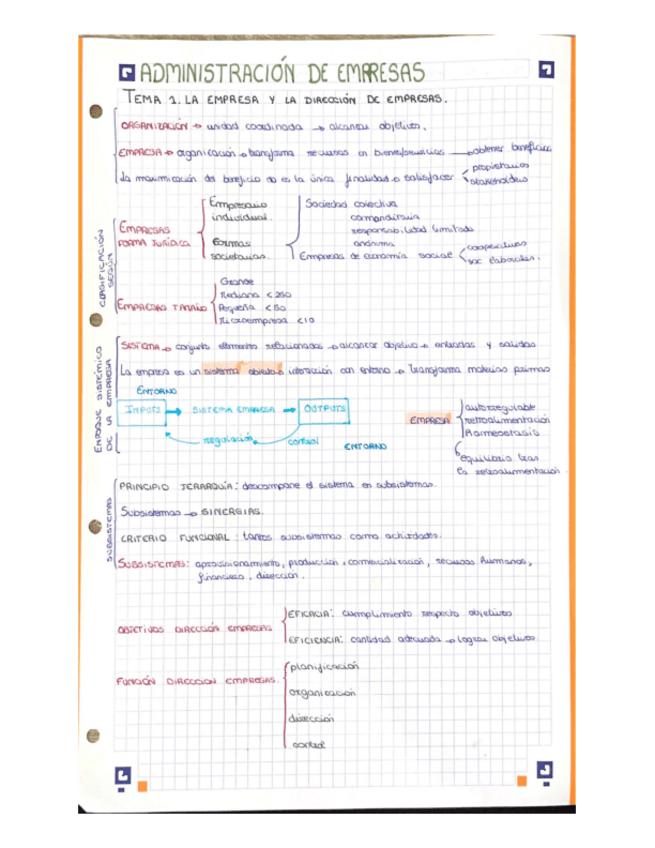 ADMINISTRACIÓN DE EMPRESAS
TEMA 1. LA EMPRESA Y LA DIRECCIÓN DE EMPRESAS.
ORGANIZACIÓN → unidad coordinada → alcanzar objetivos.
EMPRESA → organización → transforma recursos en bienes/servicios → obtener beneficios
La maximización del beneficio no es la única finalidad → satisfacer
propietarios
stakeholders
CLASIFICACIÓN SEGÚN
EMPRESAS FORMA JURÍDICA
Empresario individual.
formas societarias.
Sociedad colectiva
comanditaria
responsabilidad limitada
anónima
Empresas de economía social
cooperativas
soc. laborales.
EMPRESAS TAMAÑO
Grande
Mediana < 250
Pequeña < 50
Microempresa < 10
ENFOQUE SISTÉMICO DE LA EMPRESA
SISTEMA → conjunto elementos relacionados → alcanzar objetivo → entradas y salidas
La empresa es un sistema abierto → interacción con entorno → Transforma materias primas
ENTORNO
INPUTS → SISTEMA EMPRESA → OUTPUTS
regulación control
ENTORNO
EMPRESA
autorregulable
retroalimentación
Homeostasis
equilibrio tras
la retroalimentación.
SUBSISTEMAS
PRINCIPIO JERARQUÍA: descompone el sistema en subsistemas.
Subsistemas → SINERGIAS.
CRITERIO FUNCIONAL: tantos subsistemas como actividades.
SUBSISTEMAS: aprovisionamiento, producción, comercialización, recursos humanos,
financiero, dirección.
OBJETIVOS DIRECCIÓN EMPRESAS
EFICACIA: cumplimiento respecto objetivos
EFICIENCIA: cantidad adecuada → lograr objetivos
FUNCIÓN DIRECCION EMPRESAS.
planificación
organización
dirección
control